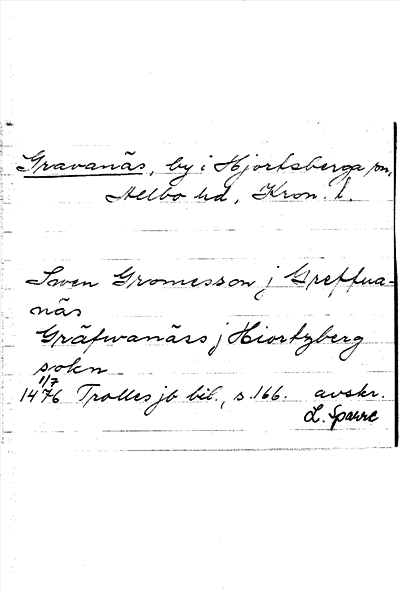 Gravanäs, by i Hjortsberga sn,
Allbo hd, Kron. l.
Swen Gromesson j Greffua-
näs
Gräfwanäss j Hiortzberg
sokn
1/7
1476 Trolles jb bil., s. 166. avskr.
L. Sparre